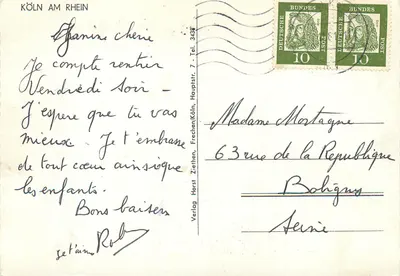 KÖLN AM RHEIN
Janine chérie
Je compte rentrir
Vendredi soir -
J'espère que tu vas
mieux. Je t'embrasse
de tout cœur ainsi que
les enfants.
Bons baisers
Je t'aime Rob
Verlag Horst Ziethen, Frechen/Köln, Hauptstr. 7, Tel. 3439
DEUTSCHE BUNDESPOST
10
DEUTSCHE BUNDESPOST
10
Madame Mostagne
63 rue de la Republique
Bobigny
Seine